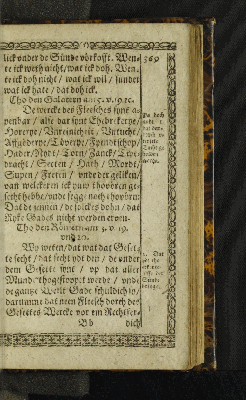 lick onder de Sünde vorkofft. Wen-
te ick weth nicht / wat ick doh. Wen-
te ick doh nicht / wat ick wil / sunder
wat ick hate / dat doh ick.
Tho den Galatern am 5. v. 19. 20.
De wercke des Fleisches synt a-
penbar / alse dar synt Ehebrekerye /
Horerye / Unreinicheit / Untucht /
Affgöderye / Töverye / Fyendtschop /
Hader / Nydt / Torn / Zanck / Twe-
dracht / Secten / Hath / Mordt /
Supen / Freten / unde der geliken /
van welckeren ick juw thovören ge-
secht hebbe / unde segge noch thovörn:
Dat de jennen / de solckes dohn / dat
Ryke Gades nicht werden erven.
Tho den Römern am 3. v. 19.
und 20.
Wy weten / dat wat dat Gesett
te secht / dat secht ydt den / de under
dem Gesette synt / up dat aller
Mundt thogestoppet werde / unde
de gantze Werlt Gade schuldich sy /
darumme dat neen Fleisch dorch des
Gesettes Wercke vor em Rechtfer-
Bb dich
369